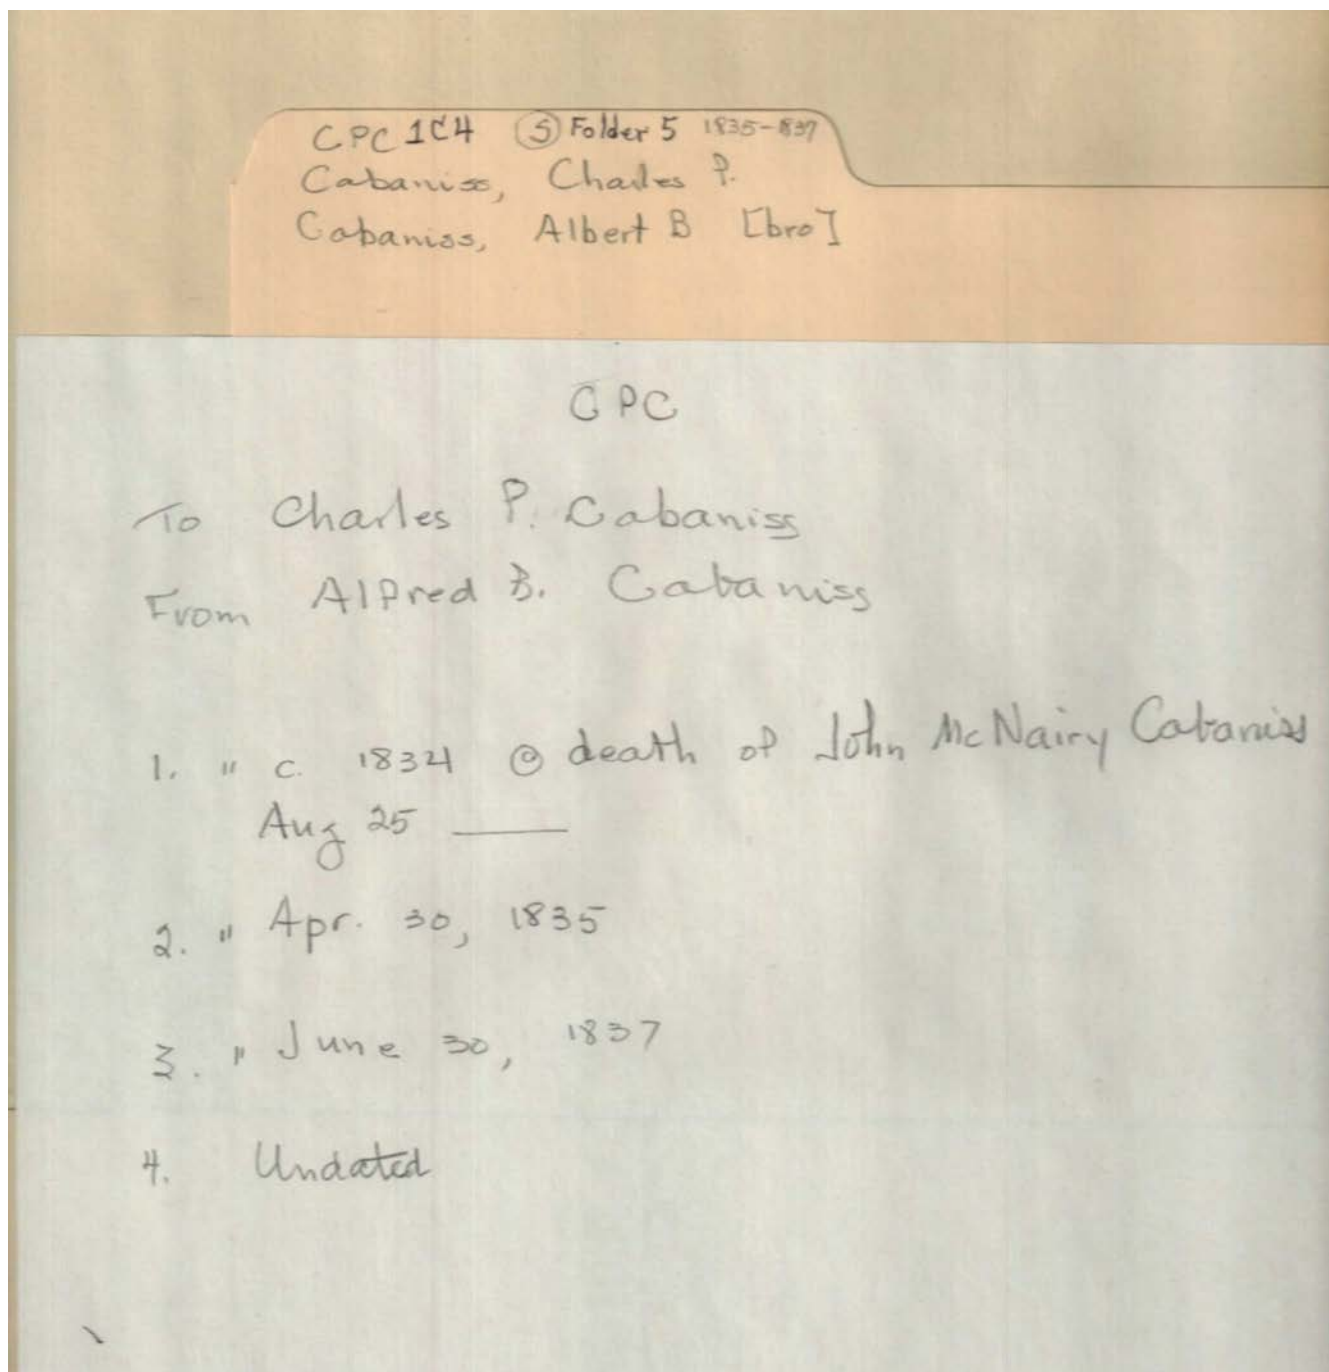 CPC 1C4 (5) Folder 5 1835-837
Cabaniss, Charles P.
Cabaniss, Albert B [bro]
CPC
To Charles P. Cabaniss
From Alfred B. Cabaniss
1. " c. 1834 @ death of John McNairy Cabaniss
Aug 25 ___
2. " Apr. 30, 1835
3. " June 30, 1837
4. Undated